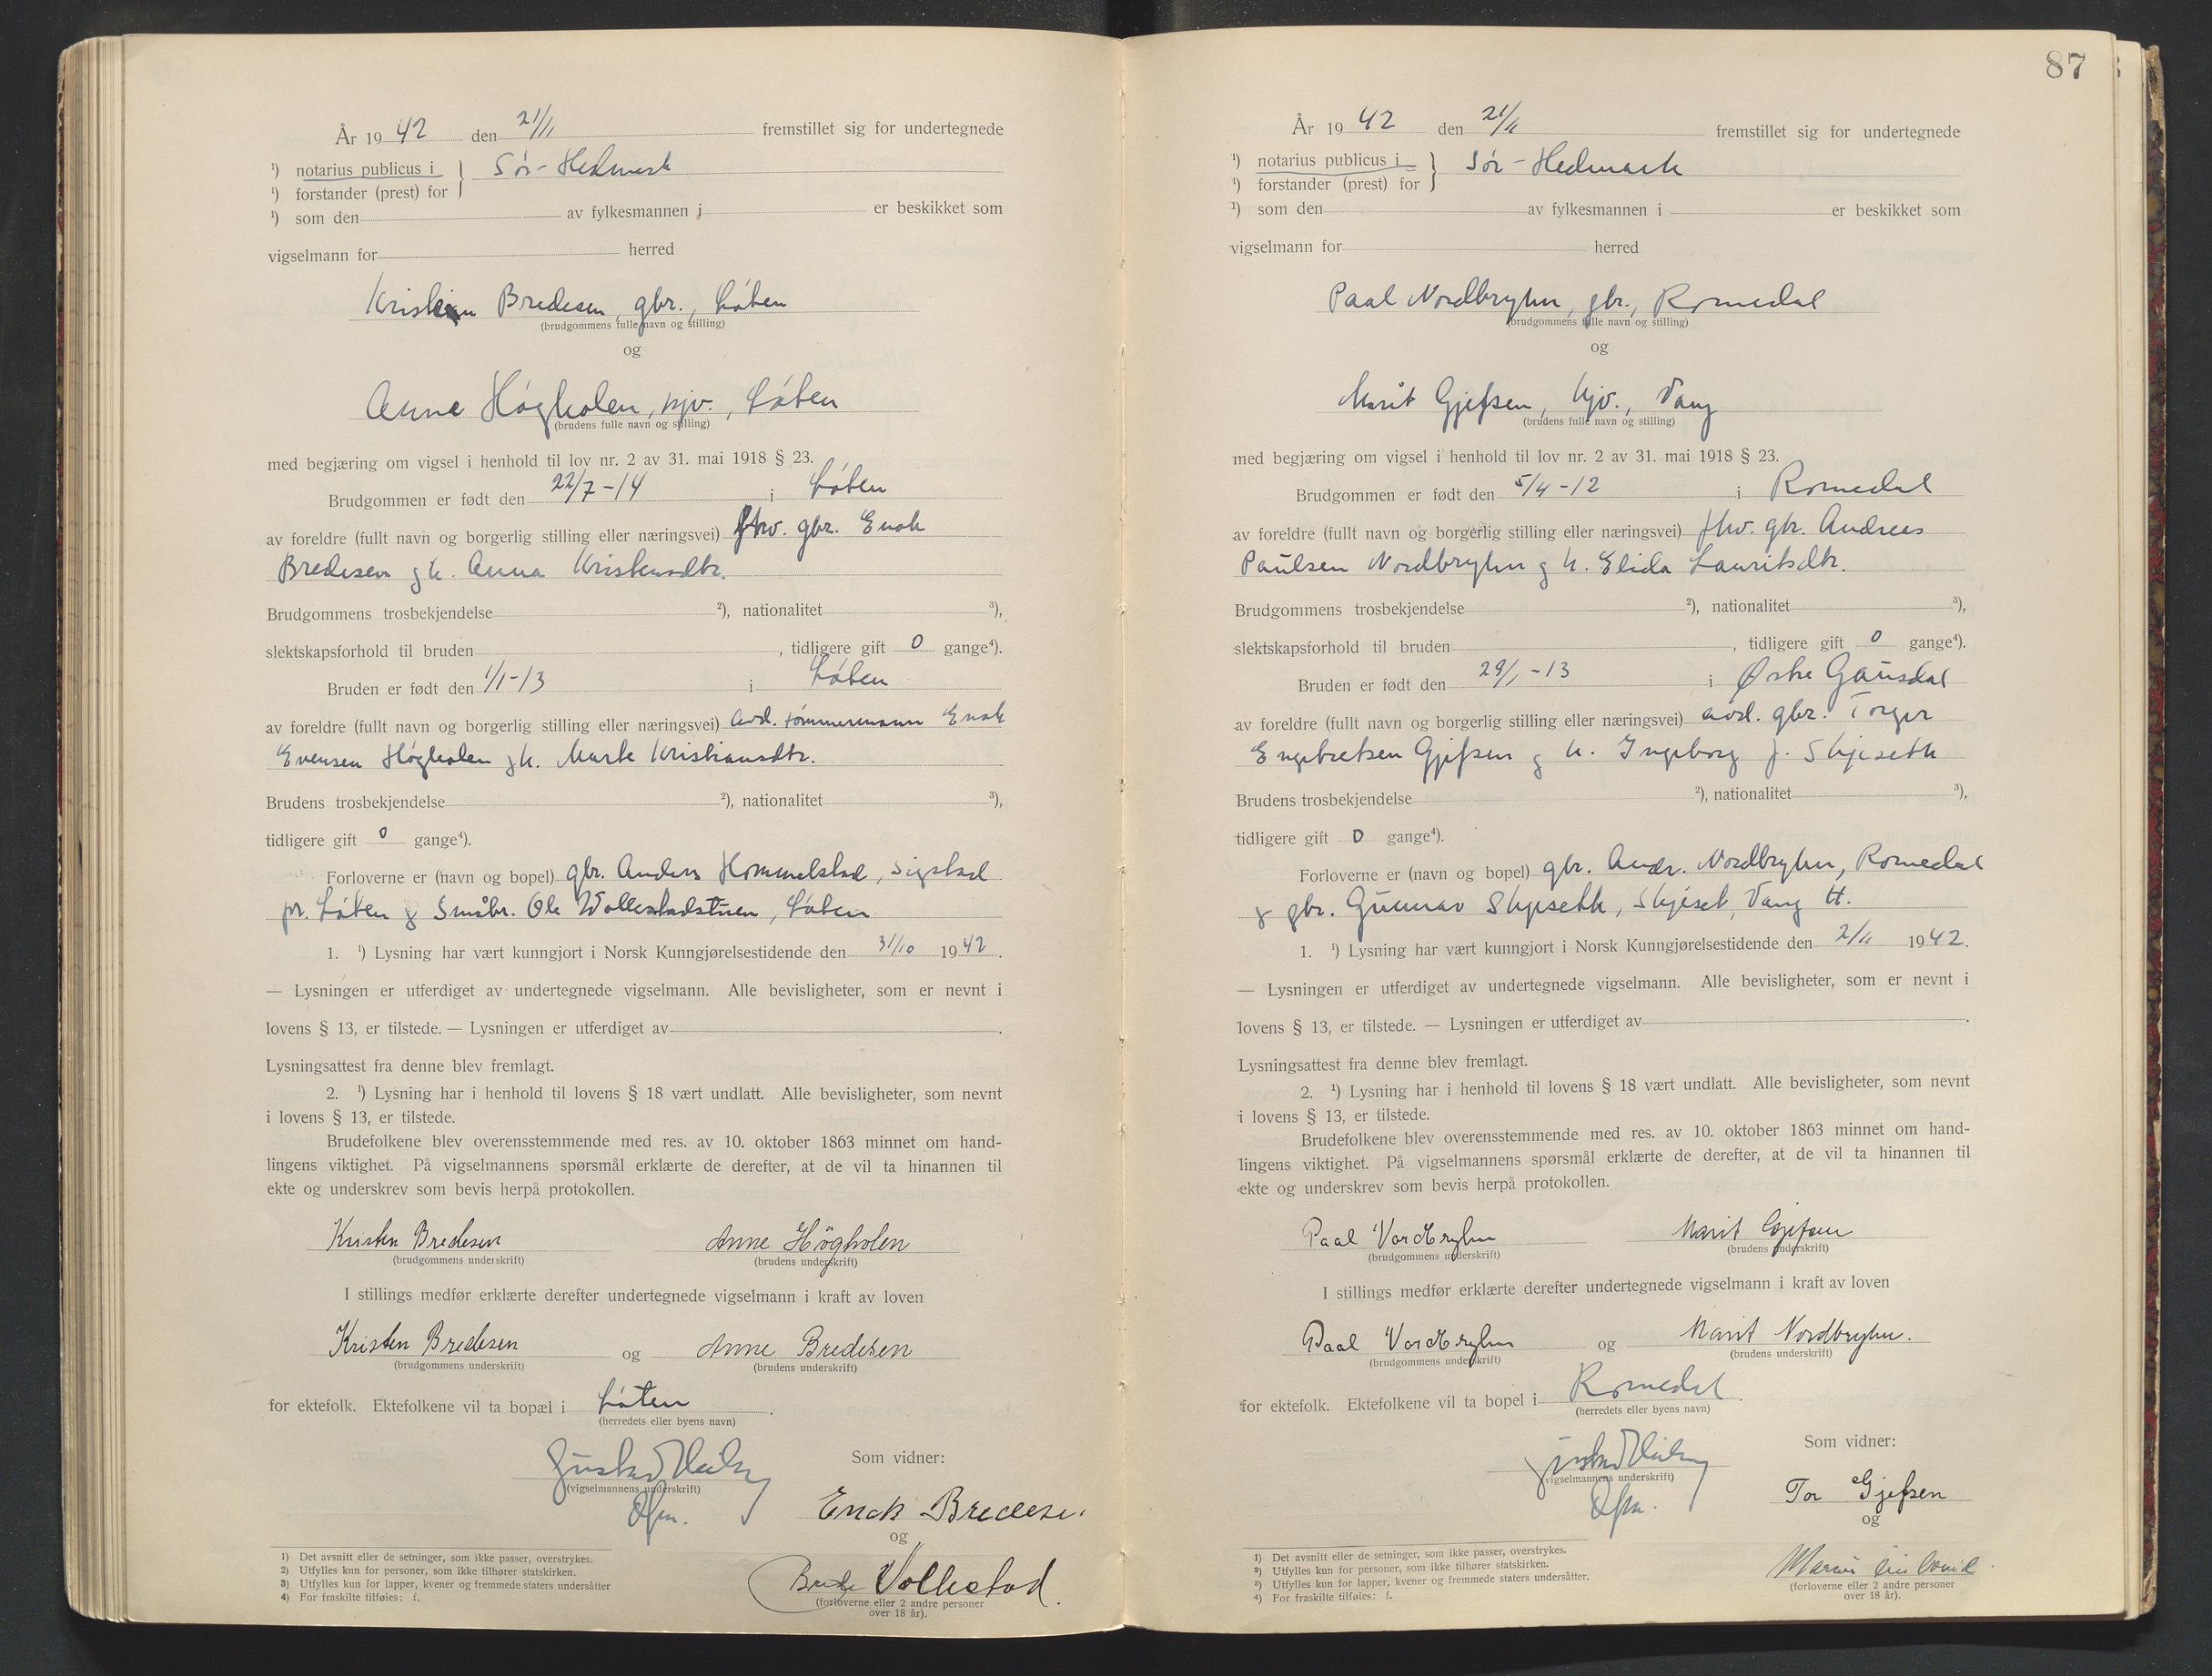 År 19 42 den 21/11 fremstillet sig for undertegnede
1) notarius publicus i } Sør-Hedmark
1) forstander (prest) for
1) som den av fylkesmannen i er beskikket som
vigselmann for herred
Kristen Bredesen, gbr., Løten
(brudgommens fulle navn og stilling)
og
Anne Høgholen, hjv., Løten
(brudens fulle navn og stilling)
med begjæring om vigsel i henhold til lov nr. 2 av 31. mai 1918 § 23.
Brudgommen er født den 22/7-14 i Løten
av foreldre (fullt navn og borgerlig stilling eller næringsvei) fhv. gbr. Enok
Bredesen g h. Anna Kristensdtr.
Brudgommens trosbekjendelse 2), nationalitet 3),
slektskapsforhold til bruden , tidligere gift 0 gange4).
Bruden er født den 1/1-13 i Løten
av foreldre (fullt navn og borgerlig stilling eller næringsvei) avd. tømmermann Enok
Evensen Høgholen g h. Marte Kristiansdtr.
Brudens trosbekjendelse 2), nationalitet 3),
tidligere gift 0 gange4).
Forloverne er (navn og bopel) gbr. Anders Hommelstad, Sigstad
pr. Løten g Småbr. Ole Wollestadstuen, Løten
1. 1) Lysning har vært kunngjort i Norsk Kunngjørelsestidende den 31/10 1942.
— Lysningen er utferdiget av undertegnede vigselmann. Alle bevisligheter, som er nevnt i
lovens § 13, er tilstede. — Lysningen er utferdiget av .
Lysningsattest fra denne blev fremlagt.
2. 1) Lysning har i henhold til lovens § 18 vært undlatt. Alle bevisligheter, som nevnt
i lovens § 13, er tilstede.
Brudefolkene blev overensstemmende med res. av 10. oktober 1863 minnet om hand-
lingens viktighet. På vigselmannens spørsmål erklærte de derefter, at de vil ta hinannen til
ekte og underskrev som bevis herpå protokollen.
Kristen Bredesen Anne Högholen
(brudgommens underskrift) (brudens underskrift)
I stillings medfør erklærte derefter undertegnede vigselmann i kraft av loven
Kristen Bredesen og Anne Bredesen
(brudgommens underskrift) (brudens underskrift)
for ektefolk. Ektefolkene vil ta bopæl i Løten .
(herredets eller byens navn)
Som vidner:
(vigselmannens underskrift)
Enok Bredesen
og
Volkestad.
(forloverne eller 2 andre personer
over 18 år).
1) Det avsnitt eller de setninger, som ikke passer, overstrykes.
2) Utfylles kun for personer, som ikke tilhører statskirken.
3) Utfylles kun for lapper, kvener og fremmede staters undersåtter
4) For fraskilte tilføies: f.
87
År 19 42 den 21/11 fremstillet sig for undertegnede
1) notarius publicus i } Sør-Hedmark
1) forstander (prest) for
1) som den av fylkesmannen i er beskikket som
vigselmann for herred
Paal Nordbryhn, gbr., Romedal
(brudgommens fulle navn og stilling)
og
Marit Gjefsen, hjv., Vang
(brudens fulle navn og stilling)
med begjæring om vigsel i henhold til lov nr. 2 av 31. mai 1918 § 23.
Brudgommen er født den 5/4-12 i Romedal
av foreldre (fullt navn og borgerlig stilling eller næringsvei) fhv. gbr. Andreas
Paulsen Nordbryhn g h. Elida Lauritsdtr.
Brudgommens trosbekjendelse 2), nationalitet 3),
slektskapsforhold til bruden , tidligere gift 0 gange4).
Bruden er født den 29/1-13 i Østre Gausdal
av foreldre (fullt navn og borgerlig stilling eller næringsvei) avd. gbr. Torger
Engebretsen Gjefsen g h. Ingeborg f. Skjeseth
Brudens trosbekjendelse 2), nationalitet 3),
tidligere gift 0 gange4).
Forloverne er (navn og bopel) gbr. Andr. Nordbryhn, Romedal
g gbr. Gunnar Skjeseth, Skjeset, Vang H.
1. 1) Lysning har vært kunngjort i Norsk Kunngjørelsestidende den 2/11 1942.
— Lysningen er utferdiget av undertegnede vigselmann. Alle bevisligheter, som er nevnt i
lovens § 13, er tilstede. — Lysningen er utferdiget av .
Lysningsattest fra denne blev fremlagt.
2. 1) Lysning har i henhold til lovens § 18 vært undlatt. Alle bevisligheter, som nevnt
i lovens § 13, er tilstede.
Brudefolkene blev overensstemmende med res. av 10. oktober 1863 minnet om hand-
lingens viktighet. På vigselmannens spørsmål erklærte de derefter, at de vil ta hinannen til
ekte og underskrev som bevis herpå protokollen.
Paal Nordbryhn Marit Gjefsen
(brudgommens underskrift) (brudens underskrift)
I stillings medfør erklærte derefter undertegnede vigselmann i kraft av loven
Paal Nordbryhn og Marit Nordbryhn.
(brudgommens underskrift) (brudens underskrift)
for ektefolk. Ektefolkene vil ta bopel i Romedal .
(herredets eller byens navn)
Som vidner:
(vigselmannens underskrift)
Tor Gjefsen
og
(forloverne eller 2 andre personer
over 18 år).
1) Det avsnitt eller de setninger, som ikke passer, overstrykes.
2) Utfylles kun for personer, som ikke tilhører statskirken.
3) Utfylles kun for lapper, kvener og fremmede staters undersåtter.
4) For fraskilte tilføies: f.